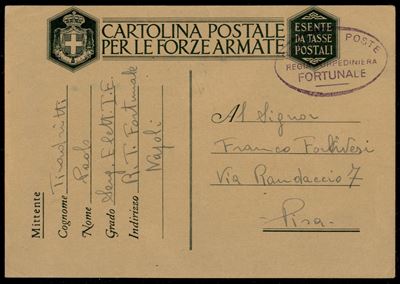 CARTOLINA POSTALE
PER LE FORZE ARMATE
ESENTE
DA TASSE
POSTALI
POSTE
TORPEDINIERA
FORTUNALE
Al Signor
Franco
Via Randaccio 7
Pisa
Mittente
Cognome
Nome Paolo
Grado Serg. Elett. I.E.
Indirizzo R. T. Fortunale
Napoli